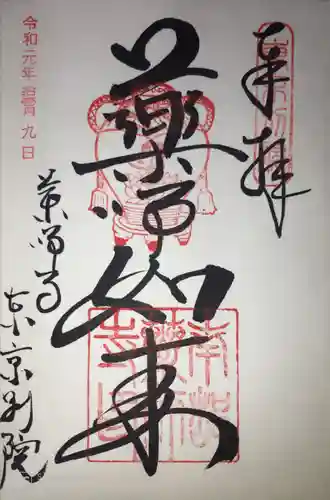 奉拝
薬師如来
令和元年拾壱月九日
薬師寺
東京別院